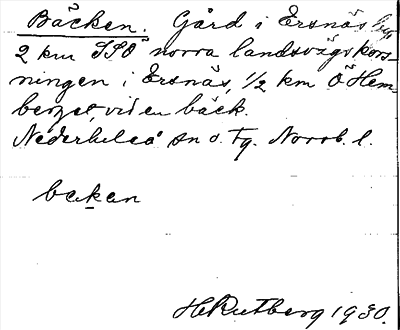 Bäcken. Gård i Ersnäs by
2 km SSO norra landsvägskors-
ningen i Ersnäs, 1/2 km Ö Hem-
berget, vid en bäck.
Nederluleå sn o. tg. Norrb. l.
backan
H Rutberg 1930.